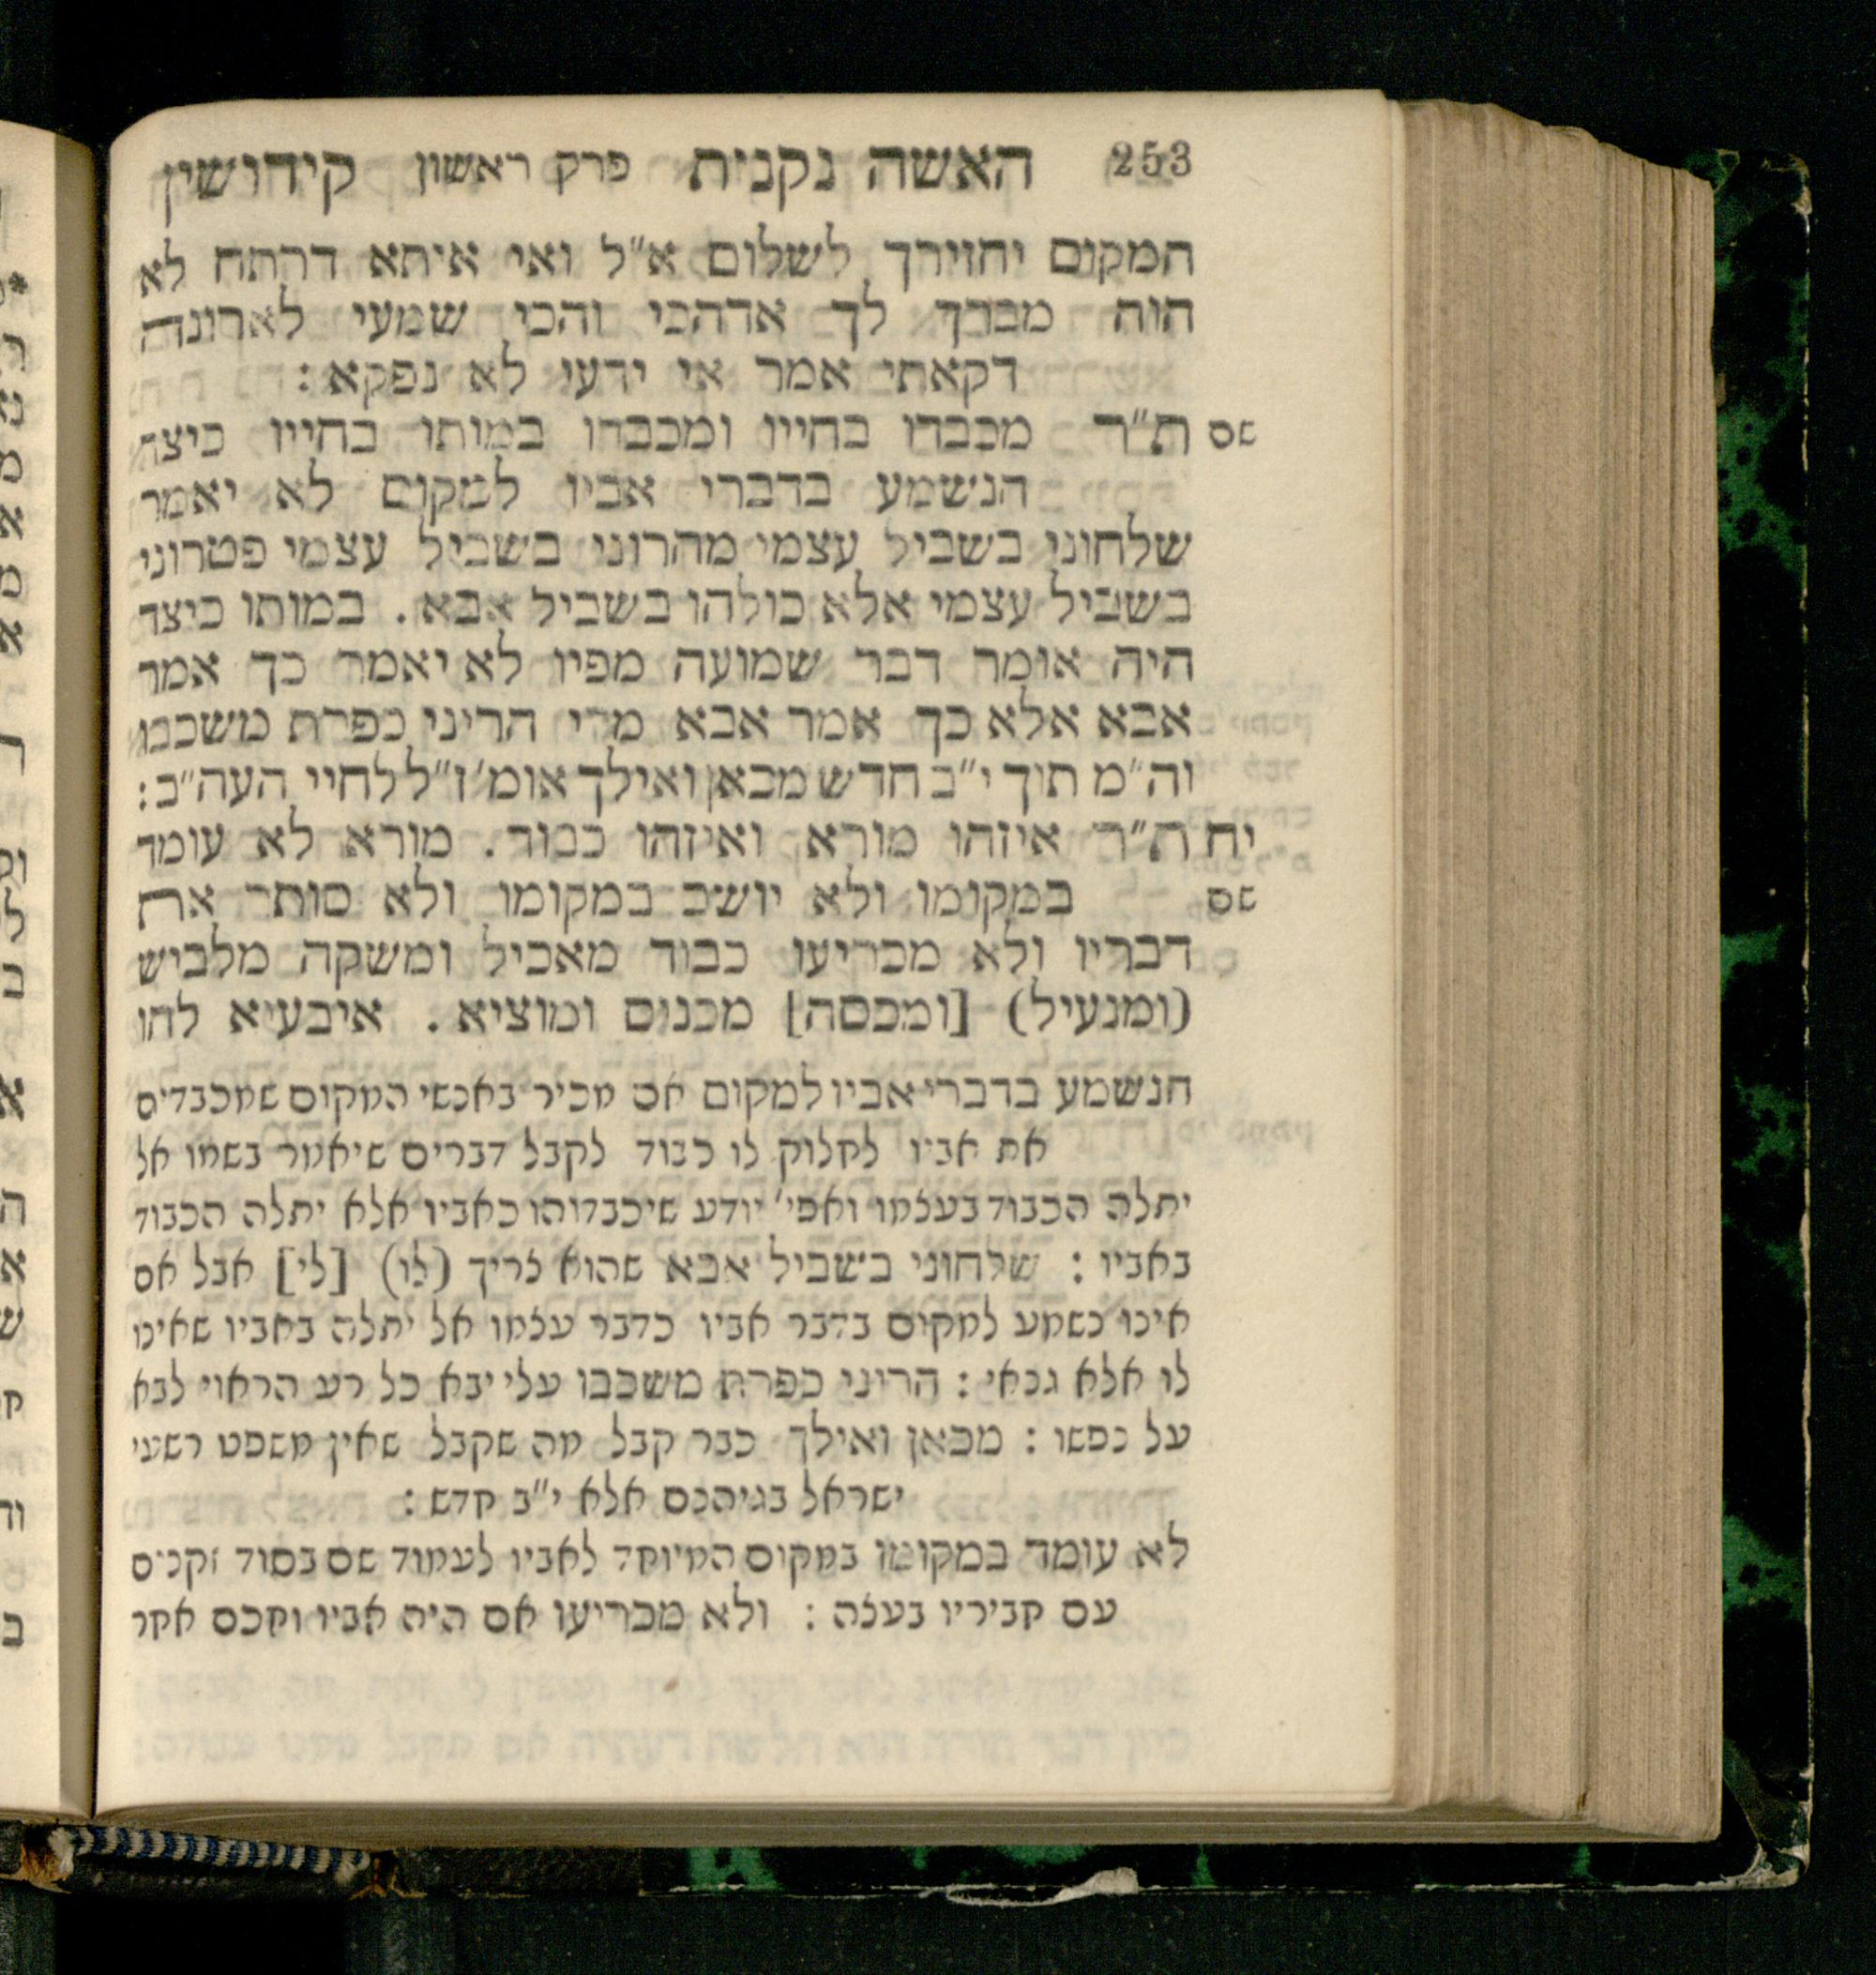 253 האשה נקנית פרק ראשון קידושין
המקום יחזירך לשלום א״ל ואי איתא דרתח לא
הוה מברך לך אדהכי והכי שמעי לארונה
דקאתי אמר אי ידעי לא נפקא :
שם ת״ר מכבדו בחייו ומכבדו במותו בחייו כיצד
הנשמע בדברי אביו למקום לא יאמר
שלחוני בשביל עצמי מהרוני בשביל עצמי פטרוני
בשביל עצמי אלא כולהו בשביל אבא . במותו כיצד
היה אומר דבר שמועה מפיו לא יאמר כך אמר
אבא אלא כך אמר אבא מרי הריני כפרת משכבו
וה״מ תוך י״ב חדש מכאן ואילך אומ׳ ז״ל לחיי העה״ב :
יח ת״ר איזהו מורא ואיזהו כבוד . מורא לא עומד
שם במקומו ולא יושב במקומו ולא סותר את
דבריו ולא מכריעו כבוד מאכיל ומשקה מלביש
(ומנעיל) [ומכסה] מכנים ומוציא . איבעיא להו
הנשמע בדברי אביו למקום אם מכיר באנשי המקום שמכבדים
את אביו לחלוק לו כבוד לקבל דברים שיאמר בשמו אל
יתלה הכבוד בעצמו ואפי׳ יודע שיכבדוהו כאביו אלא יתלה הכבוד
באביו : שלחוני בשביל אבא שהוא צריך (לו) [לי] אבל אם
אינו נשמע למקום בדבר אביו כדבר עצמו אל יתלה באביו שאינו
לו אלא גנאי : הרוני כפרת משכבו עלי יבא כל רע הראוי לבא
על נפשו : מכאן ואילך כבר קבל מה שקבל שאין משפט רשעי
ישראל בגיהנם אלא י״ב חדש :
לא עומד במקומו במקום המיוחד לאביו לעמוד שם בסוד זקנים
עם חביריו בעצה : ולא מכריעו אם היה אביו וחכם אחר